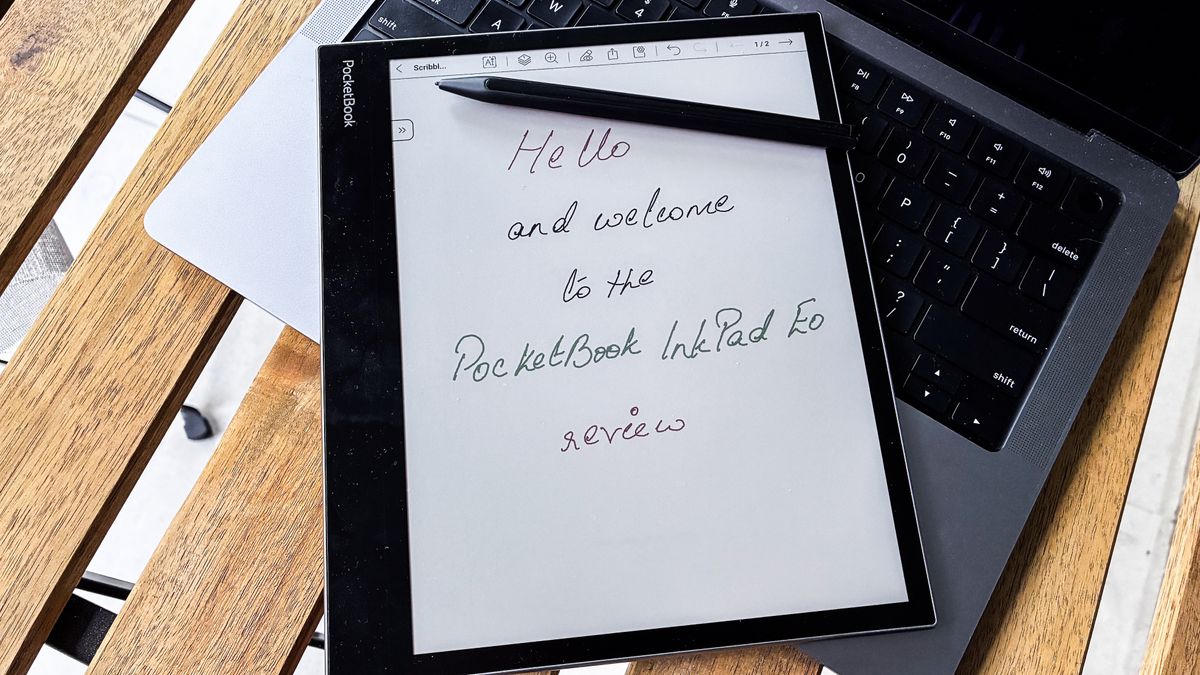 PocketBook
Scribbl... 1/2
Hello
and welcome
to the
PocketBook InkPad Eo
review
shift
A
W
4
F8
F9
F10
F11
F12
) 0
_ -
+ =
delete
P
{ [
} ]
| \
: ;
" '
return
? /
shift